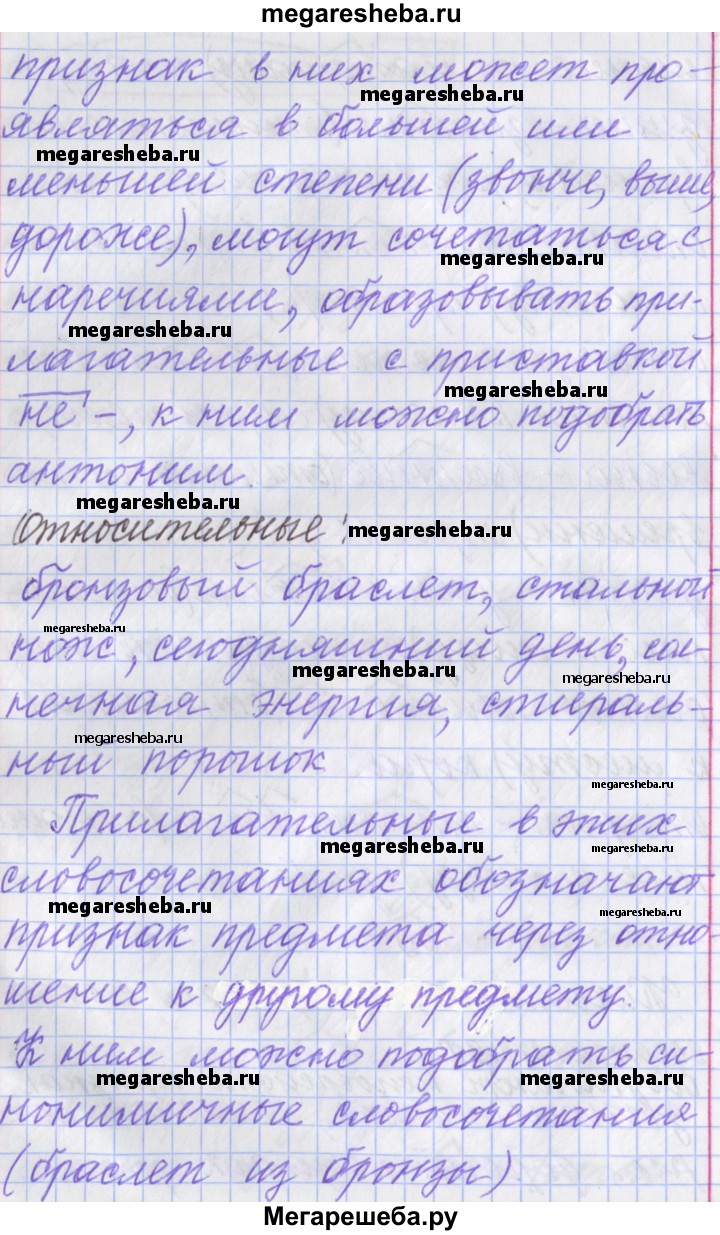 megaresheba.ru
признак в них может про-
megaresheba.ru
являться в большей или
megaresheba.ru
меньшей степени (звонче, выше,
дороже), могут сочетаться с
megaresheba.ru
наречиями, образовывать при-
megaresheba.ru
лагательные с приставкой
megaresheba.ru
не-, к ним можно подобрать
антоним.
megaresheba.ru
Относительные: megaresheba.ru
бронзовый браслет, стальной
megaresheba.ru
нож, сегодняшний день, сол-
megaresheba.ru megaresheba.ru
нечная энергия, стираль-
megaresheba.ru
ный порошок
megaresheba.ru
Прилагательные в этих
megaresheba.ru megaresheba.ru
словосочетаниях обозначают
megaresheba.ru megaresheba.ru
признак предмета через отно-
шение к другому предмету.
К ним можно подобрать си-
megaresheba.ru megaresheba.ru
нонимичные словосочетания
(браслет из бронзы).
Мегарешеба.ру